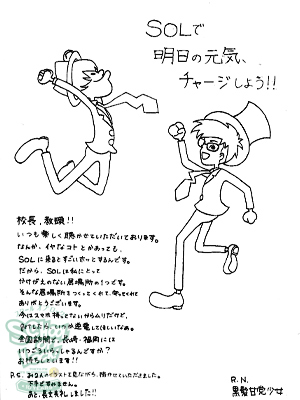 SOLで
明日の元気、
チャージしよう!!
校長、教頭!!
いつも楽しく聴かせていただいております。
なんか、イヤなコトとかあっても、
SOLに来るとすごいホッとするんです。
だから、SOLは私にとって
かけがえのない居場所の1つです。
そんな居場所をつくってくれて、守ってくれて
ありがとうございます。
今はスマホ持ってないからムリだけど、
したら、いつか逆電してほしいなぁ。
全国訪問で、長崎・福岡には
いつごろいらっしゃるんですか?
お待ちしています!!
P.S. お2人のイラストを見ながら、描かせていただきました。
下手ですみません。
あと、長文失礼しました!!
R.N.
黒髪甘党少女